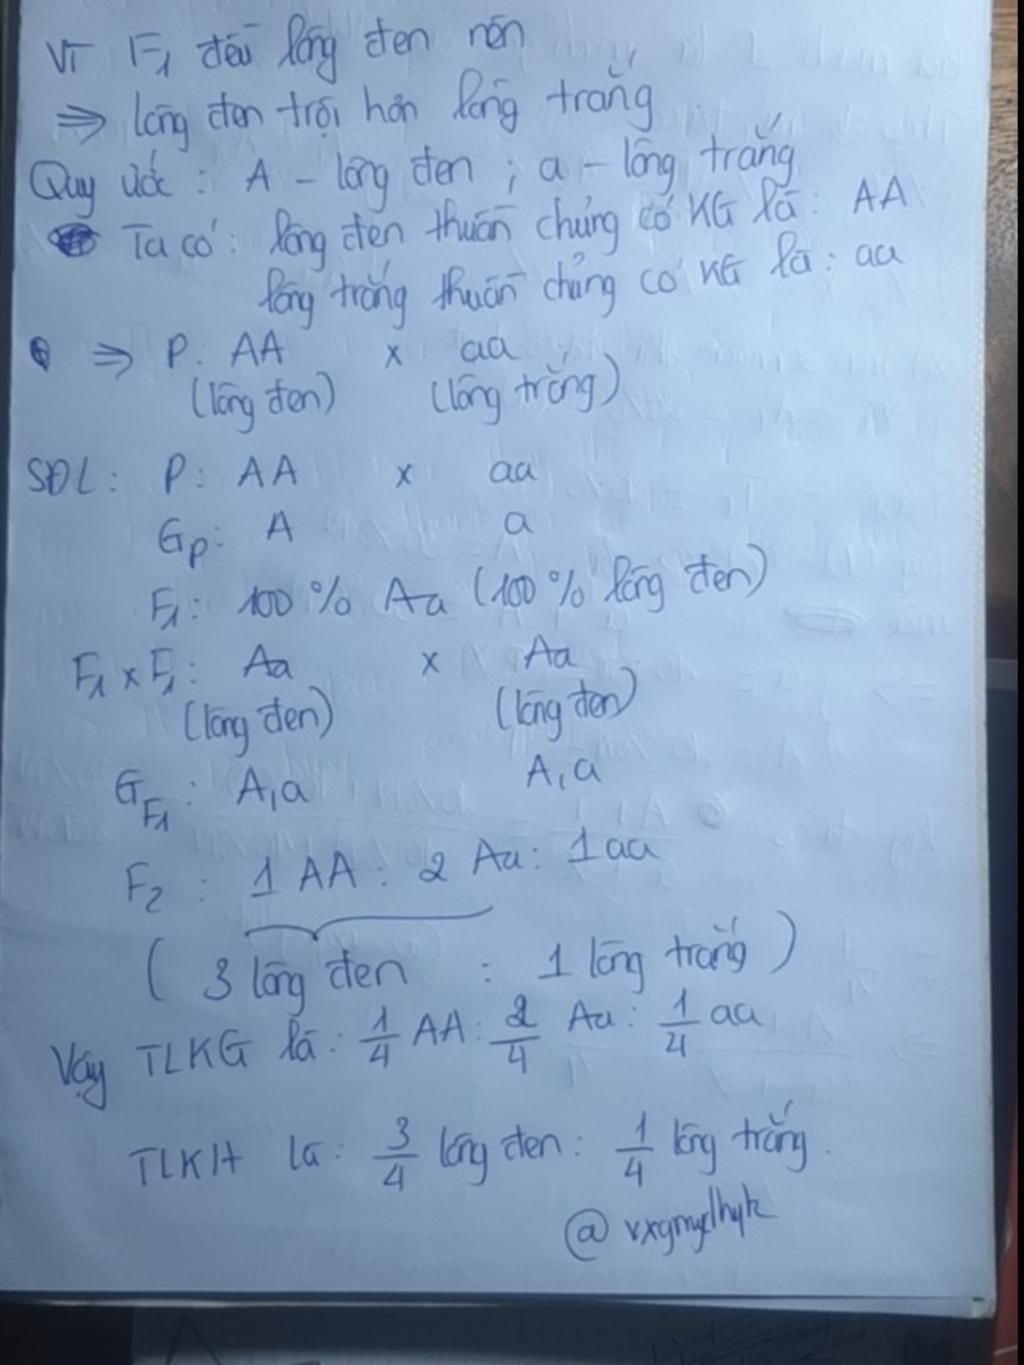 Vì F1 đều lông đen nên
⇒ lông đen trội hơn lông trắng
Quy ước: A - lông đen ; a - lông trắng
Ta có: lông đen thuần chủng có KG là: AA
lông trắng thuần chủng có KG là: aa
⇒ P: AA x aa
(lông đen) (lông trắng)
SĐL: P: AA x aa
GP: A a
F1: 100% Aa (100% lông đen)
F1 x F1: Aa x Aa
(lông đen) (lông đen)
GF1: A,a A,a
F2: 1 AA : 2 Aa : 1 aa
( 3 lông đen : 1 lông trắng )
Vậy TLKG là: 1/4 AA : 2/4 Aa : 1/4 aa
TLKH là: 3/4 lông đen : 1/4 lông trắng.